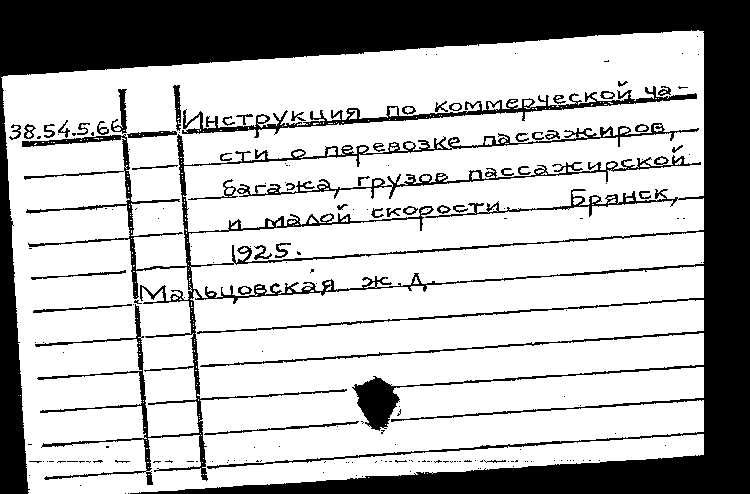 38.54.5.66 Инструкция по коммерческой ча-
сти о перевозке пассажиров,
багажа, грузов пассажирской
и малой скорости. Брянск,
1925.
Мальцовская ж.д.